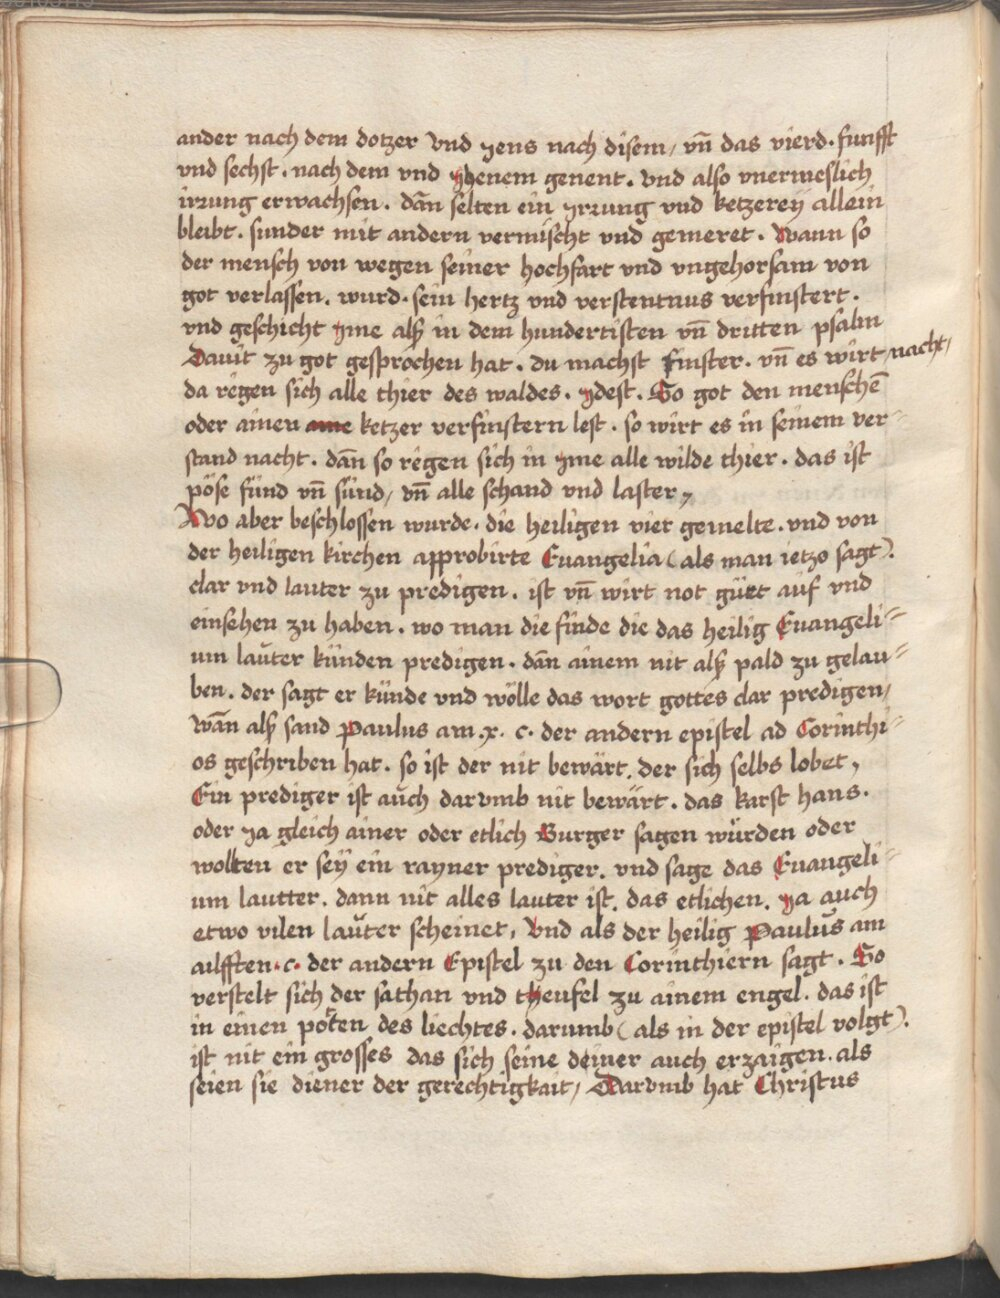 ander nach dem dotzer vnd yens nach disem, vn̄ das vierd. funfft
vnd sechst. nach dem vnd yhenem genent. vnd also vnermeslich
irrung erwachsen. dān selten ein yrrung vnd ketzereÿ allein
bleibt. sunder mit andern vermischt vnd gemeret. Wann so
der mensch von wegen seiner hochfart vnd vngehorsam von
got verlassen. wurd. sein hertz vnd verstentnus verfinstert.
vnd geschicht yme alß in dem hundertisten vn̄ dritten psalm
Dauit zu got gesprochen hat. du machst finster. vn̄ es wirt nacht,
da regen sich alle thier des waldes. ydest. So got den menschē
oder ainen ketzer verfinstern lest. so wirt es in seinem ver=
stand nacht. dān so regen sich in yme alle wilde thier. das ist
pöse fünd vn̄ sünd, vn̄ alle schand vnd laster,
Wo aber beschlossen wurde. die heiligen vier gemelte. vnd von
der heiligen kirchen approbirte Euangelia (als man ietzo sagt).
clar vnd lauter zu predigen. ist vn̄ wirt not güet auf vnd
einsehen zu haben. wo man die finde die das heilig Euangeli=
um lauter künden predigen. dān ainem nit alß pald zu gelau=
ben. der sagt er künde vnd wölle das wort gottes clar predigen,
wān alß sand Paulus am .x. c. der andern epistel ad Corinthi=
os geschriben hat. so ist der nit bewärt. der sich selbs lobet,
Ein prediger ist auch darvmb nit bewärt. das karst hans.
oder ya gleich ainer oder etlich Burger sagen würden oder
wollten er seÿ ein rayner prediger. vnd sage das Euangeli=
um lautter. dann nit alles lauter ist. das etlichen. ya auch
etwo vilen lauter scheinet, Vnd als der heilig Paulus am
ailfften .c. der andern Epistel zu den Corinthiern sagt. So
verstelt sich der sathan vnd theufel zu ainem engel. das ist
in einen poten des liechtes. darumb (als in der epistel volgt).
ist nit ein grosses das sich seine deiner auch erzaigen. als
seien sie diener der gerechtigkait, Darvmb hat Christus